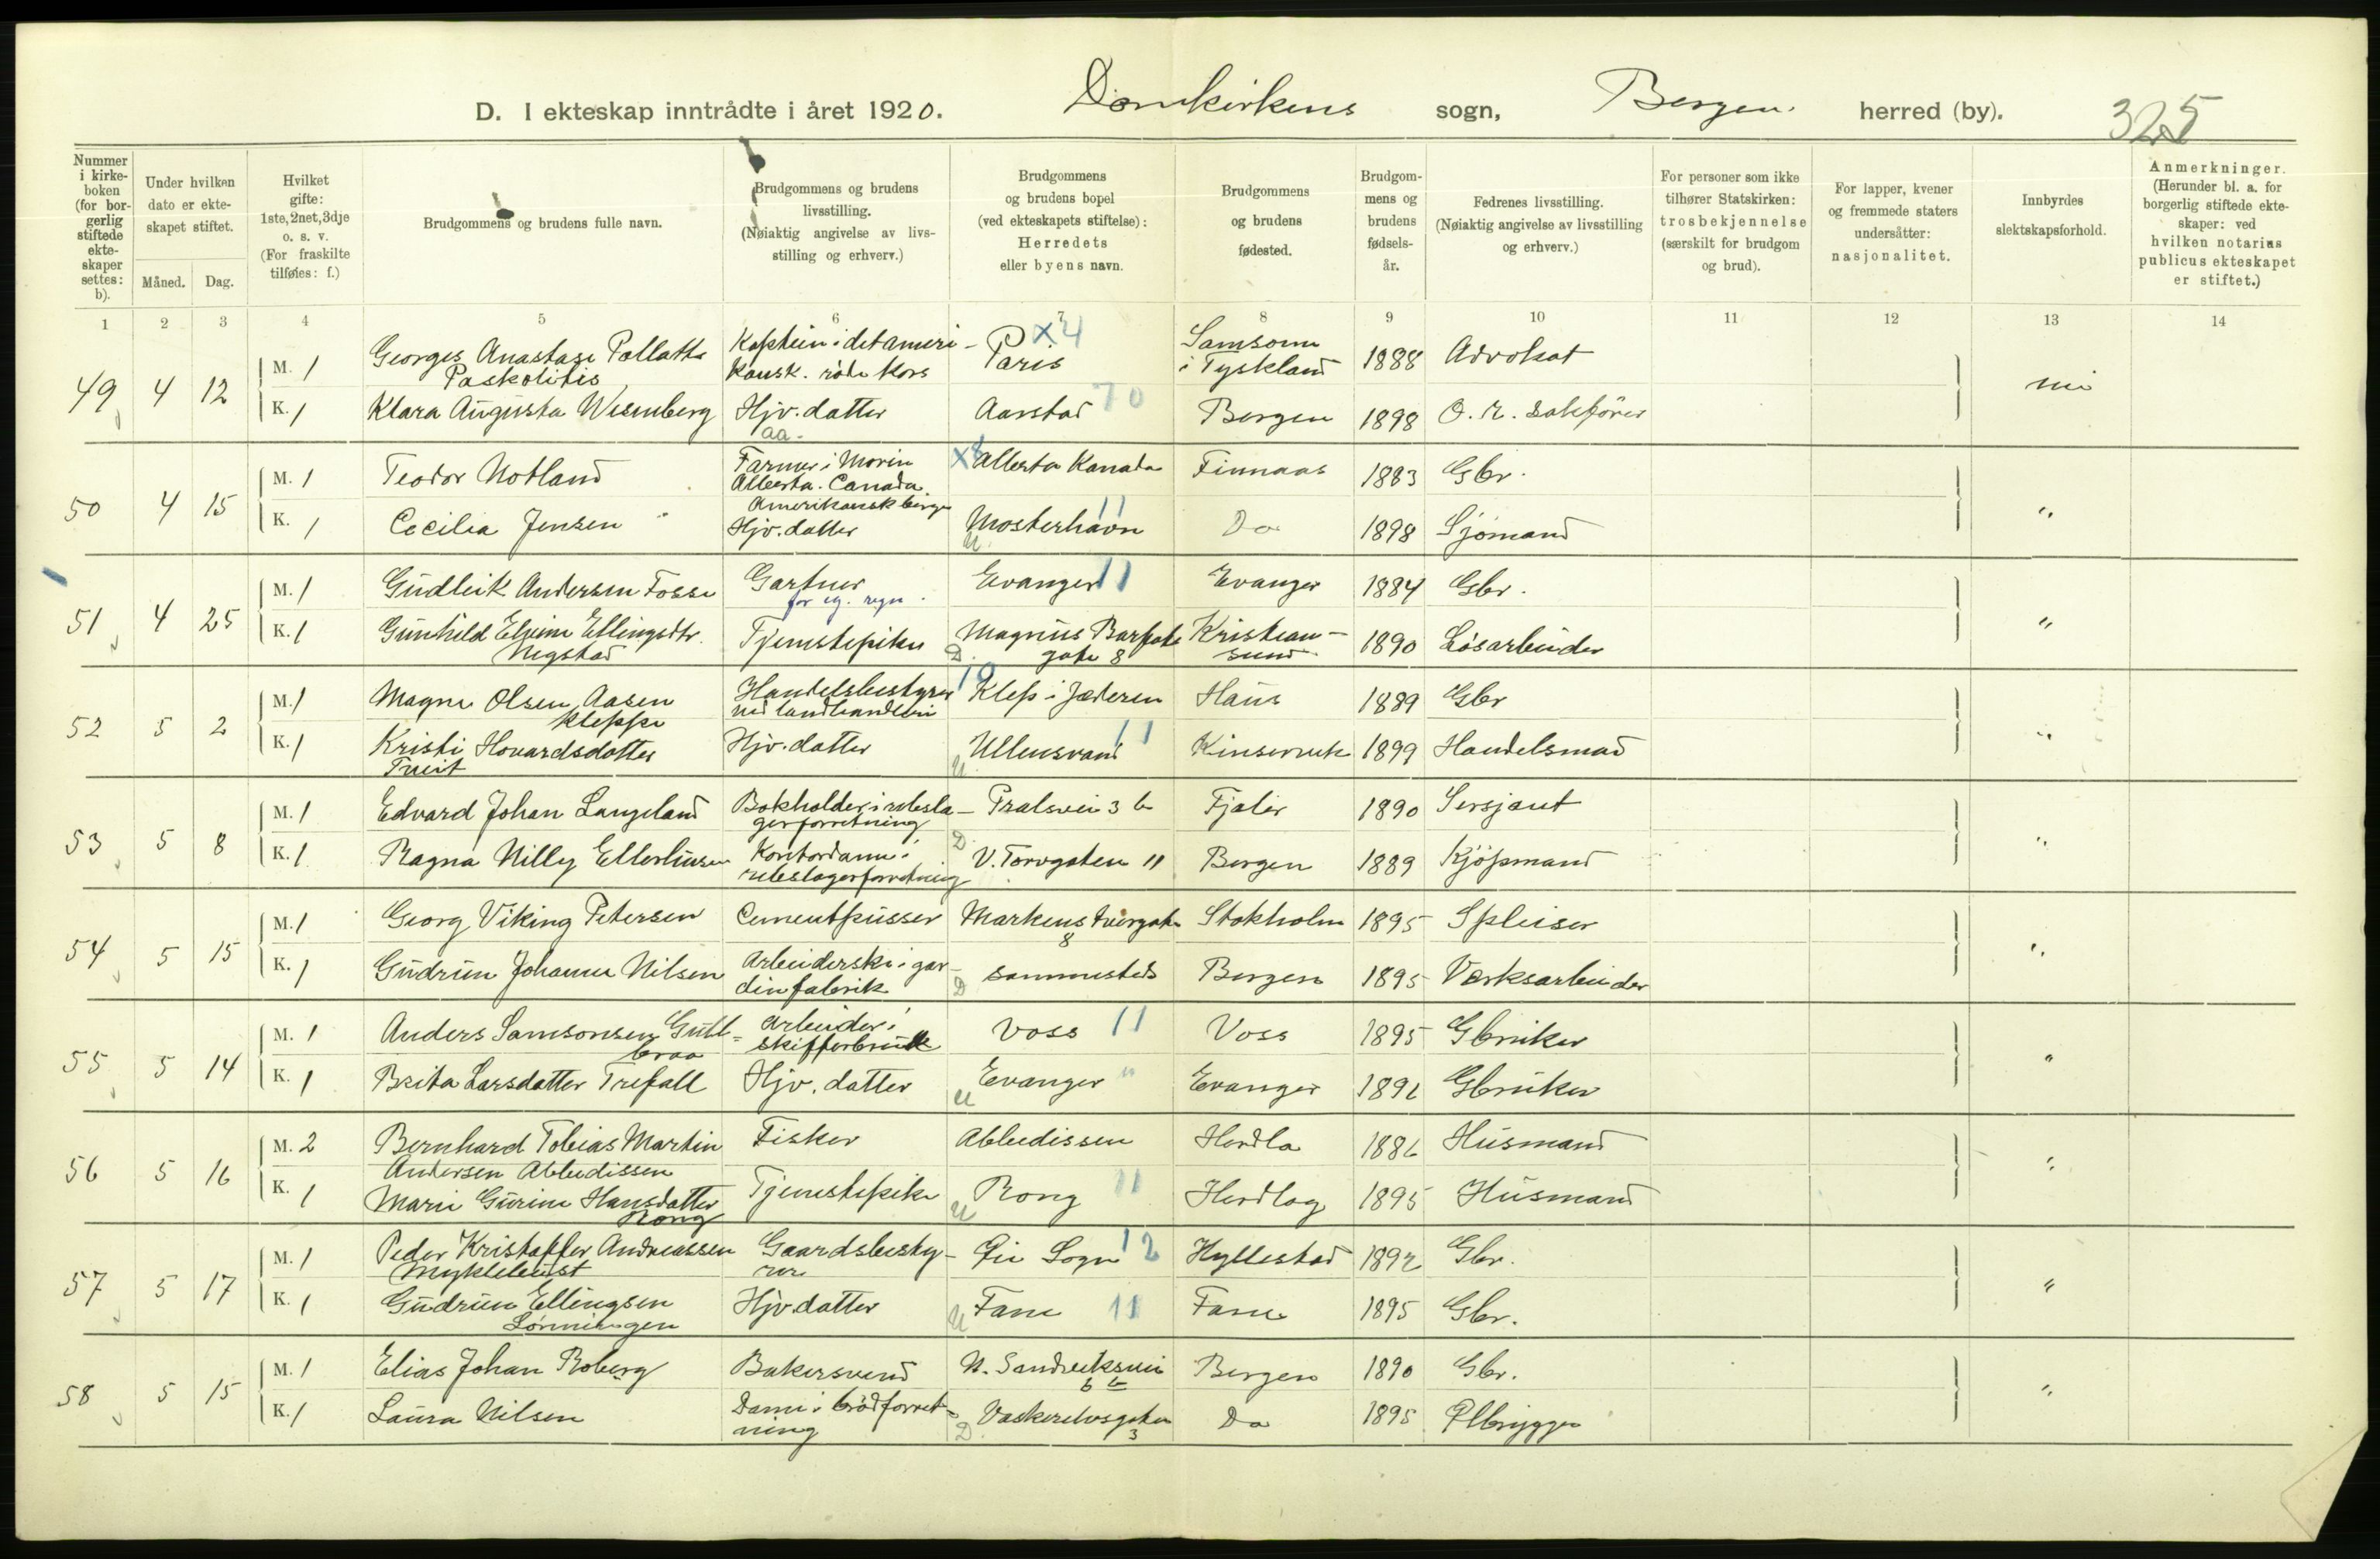 D. I ekteskap inntrådte i året 1920. Domkirkens sogn, Bergen. herred (by). 325
Nummer i kirke-boken (for bor-gerlig stiftede ekte-skaper settes: b).
Under hvilken dato er ekte-skapet stiftet.
Måned. Dag.
Hvilket gifte: 1ste, 2net, 3dje o. s. v. (For fraskilte tilføies: f.)
Brudgommens og brudens fulle navn.
Brudgommens og brudens livsstilling. (Nøiaktig angivelse av livs-stilling og erhverv.)
Brudgommens og brudens bopel (ved ekteskapets stiftelse): Herredets eller byens navn.
Brudgommens og brudens fødested.
Brudgom-mens og brudens fødsels-år.
Fedrenes livsstilling. (Nøiaktig angivelse av livsstilling og erhverv.)
For personer som ikke tilhører Statskirken: trosbekjennelse (særskilt for brudgom og brud).
For lapper, kvener og fremmede staters undersåtter: nasjonalitet.
Innbyrdes slektskapsforhold.
Anmerkninger. (Herunder bl. a. for borgerlig stiftede ekte-skaper: ved hvilken notarius publicus ekteskapet er stiftet.)
1 2 3 4 5 6 7 8 9 10 11 12 13 14
49 4 12 M. 1 Georges Anastase Pollatta Paskolitis Kaptein i det ameri-kansk. röde Kors Paris X4 Samsoun i Tyskland 1888 Advokat
K. 1 Klara Augusta Wesenberg Hjv. datter aa. Aarstad 70 Bergen 1898 O. r. sakförer nei
50 4 15 M. 1 Teodor Notland Farmer i Morin Alberta. Canada Amerikansk borger X8 Alberta Kanada Finnaas 1883 Gbr.
K. 1 Cecilia Jensen Hjv. datter Mosterhavn 11 U Do 1898 Sjömand "
51 4 25 M. 1 Gudleik Andersen Fosse Gartner for eg. regn. Evanger 11 Evanger 1884 Gbr.
K. 1 Gunhild Elvine Ellingsdtr. Negstad Tjenestepike Magnus Barfots gate 8 D. Kristian-sund 1890 Lösarbeider "
52 5 2 M. 1 Magne Olsen Aasen Kleppe Handelsbestyrer ved landhandleri 10 Klep i Jæderen Haus 1889 Gbr
K. 1 Kristi Hovardsdatter Tveit Hjv. datter Ullensvand 11 U. Kinservik 1899 Handelsmad "
53 5 8 M. 1 Edvard Johan Langeland Bokholder i rebsla-gerforretning Fralsvei 3 b Fjaler 1890 Sersjant
K. 1 Ragna Nilly Ellerhusen Kontordame i rebslagerforretning D. V. Torvgaten 11 Bergen 1889 Kjöpmand "
54 5 15 M. 1 Georg Viking Petersen Cementpusser Markens tvergate 8 Stokholm 1895 Spleiser
K. 1 Gudrun Johanne Nilsen Arbeiderske i gar-dinfabrik D sammesteds Bergen 1895 Verksarbeider "
55 5 14 M. 1 Anders Samsonsen Gull-braa Arbeider i skifferbrudd Voss 11 Voss 1895 Gbruker
K. 1 Brita Larsdatter Trefall Hjv. datter U Evanger " Evanger 1892 Gbruker "
56 5 16 M. 2 Bernhard Tobias Martin Andersen Abbedissen Fisker Abbedissen Herdla 1886 Husmand
K. 1 Marie Gurine Hansdatter Rong Tjenestepike U Rong 11 Herdlag 1895 Husmand "
57 5 17 M. 1 Peder Kristoffer Andreassen Myklebust Gaardsbesty-rer Sogn 12 Hyllestad 1892 Gbr.
K. 1 Gudrun Ellingsen Lönningen Hjv. datter U Fane 11 Fane 1895 Gbr. "
58 5 15 M. 1 Elias Johan Roberg Bakersvend N. Sandviksvei 6 b Bergen 1890 Gbr.
K. 1 Laura Nilsen Dame i brödforret-ning D. Vaskerelvsgaten 3 Do 1895 Ølbrygger "